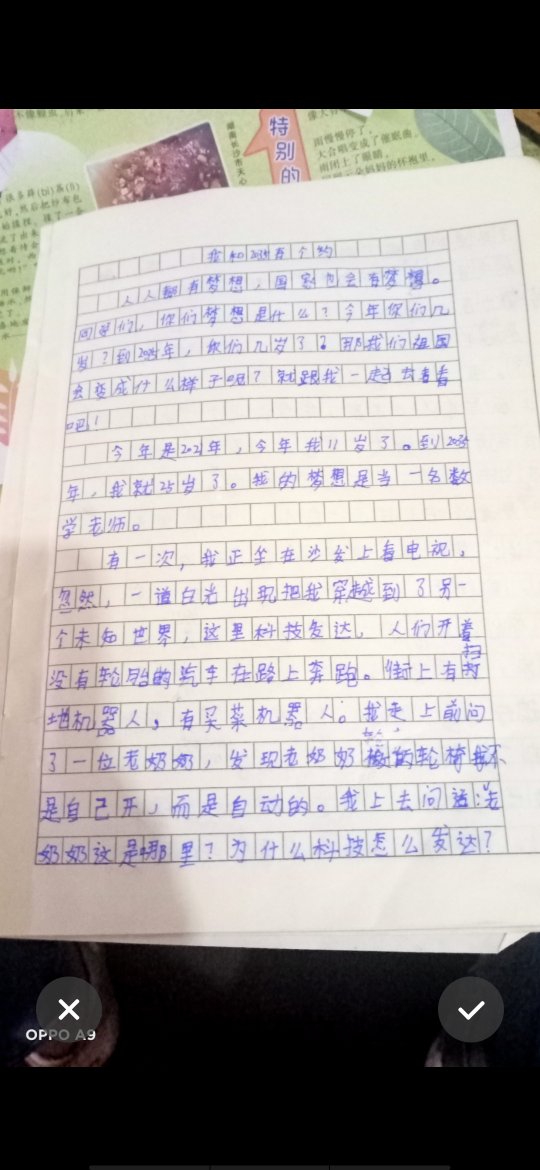 特别的
湖南长沙市天心
雨慢慢停了，
大合唱变成了催眠曲。
雨闭上了眼睛，
我和2035有个约
人人都有梦想，国家也会有梦想。
同学们，你们梦想是什么？今年你们几
岁？到2035年，你们几岁了？那我们祖国
会变成什么样子呢？就跟我一起去看看
吧！
今年是2021年，今年我11岁了。到2035
年，我就25岁了。我的梦想是当一名数
学老师。
有一次，我正坐在沙发上看电视，
忽然，一道白光出现把我穿越到了另一
个未知世界，这里科技发达，人们开着
没有轮胎的汽车在路上奔跑。街上有扫
地机器人，有买菜机器人。我走上前问
了一位老奶奶，发现老奶奶的轮椅不
是自己开，而是自动的。我上去问道：老
奶奶这是哪里？为什么科技怎么发达？
OPPO A9